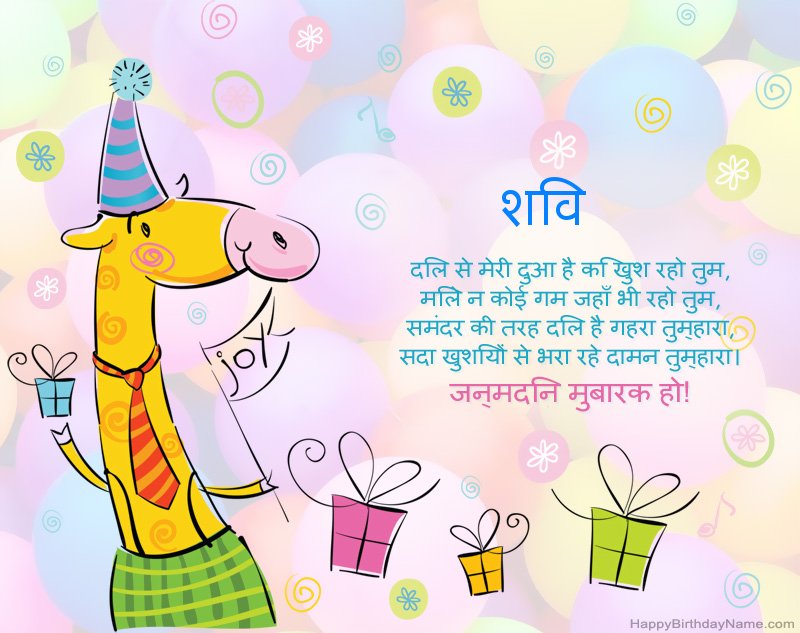 शवि
joy
दलि से मेरी दुआ है कि खुश रहो तुम,
मलिे न कोई गम जहाँ भी रहो तुम,
समंदर की तरह दलि है गहरा तुम्‌हारा,
सदा खुशयिों से भरा रहे दामन तुम्‌हारा।
जन्‌मदनि मुबारक हो!
HappyBirthdayName.com